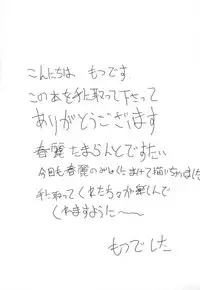 こんにちは もつです
この本を手に取って下さって
ありがとうございます
春麗たまらんとですたい
今回も春麗の
手に取ってくれた方々が楽しんで
くれますように〜
もつでした